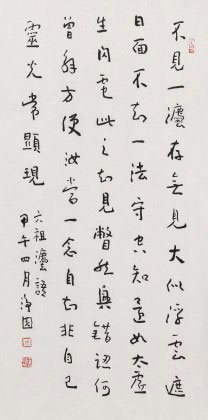 不見一灋存無見大似浮雲遮
日面不知一法守空知還如太虛
生閃電此之知見瞥然興錯認何
曾解方便汝當一念自知非自己
靈光常顯現
六祖灋語
甲午四月